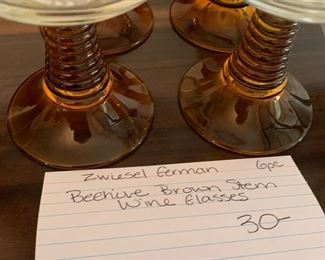 Zwiesel German 6pc
Beehive Brown Stem
Wine Glasses
30-